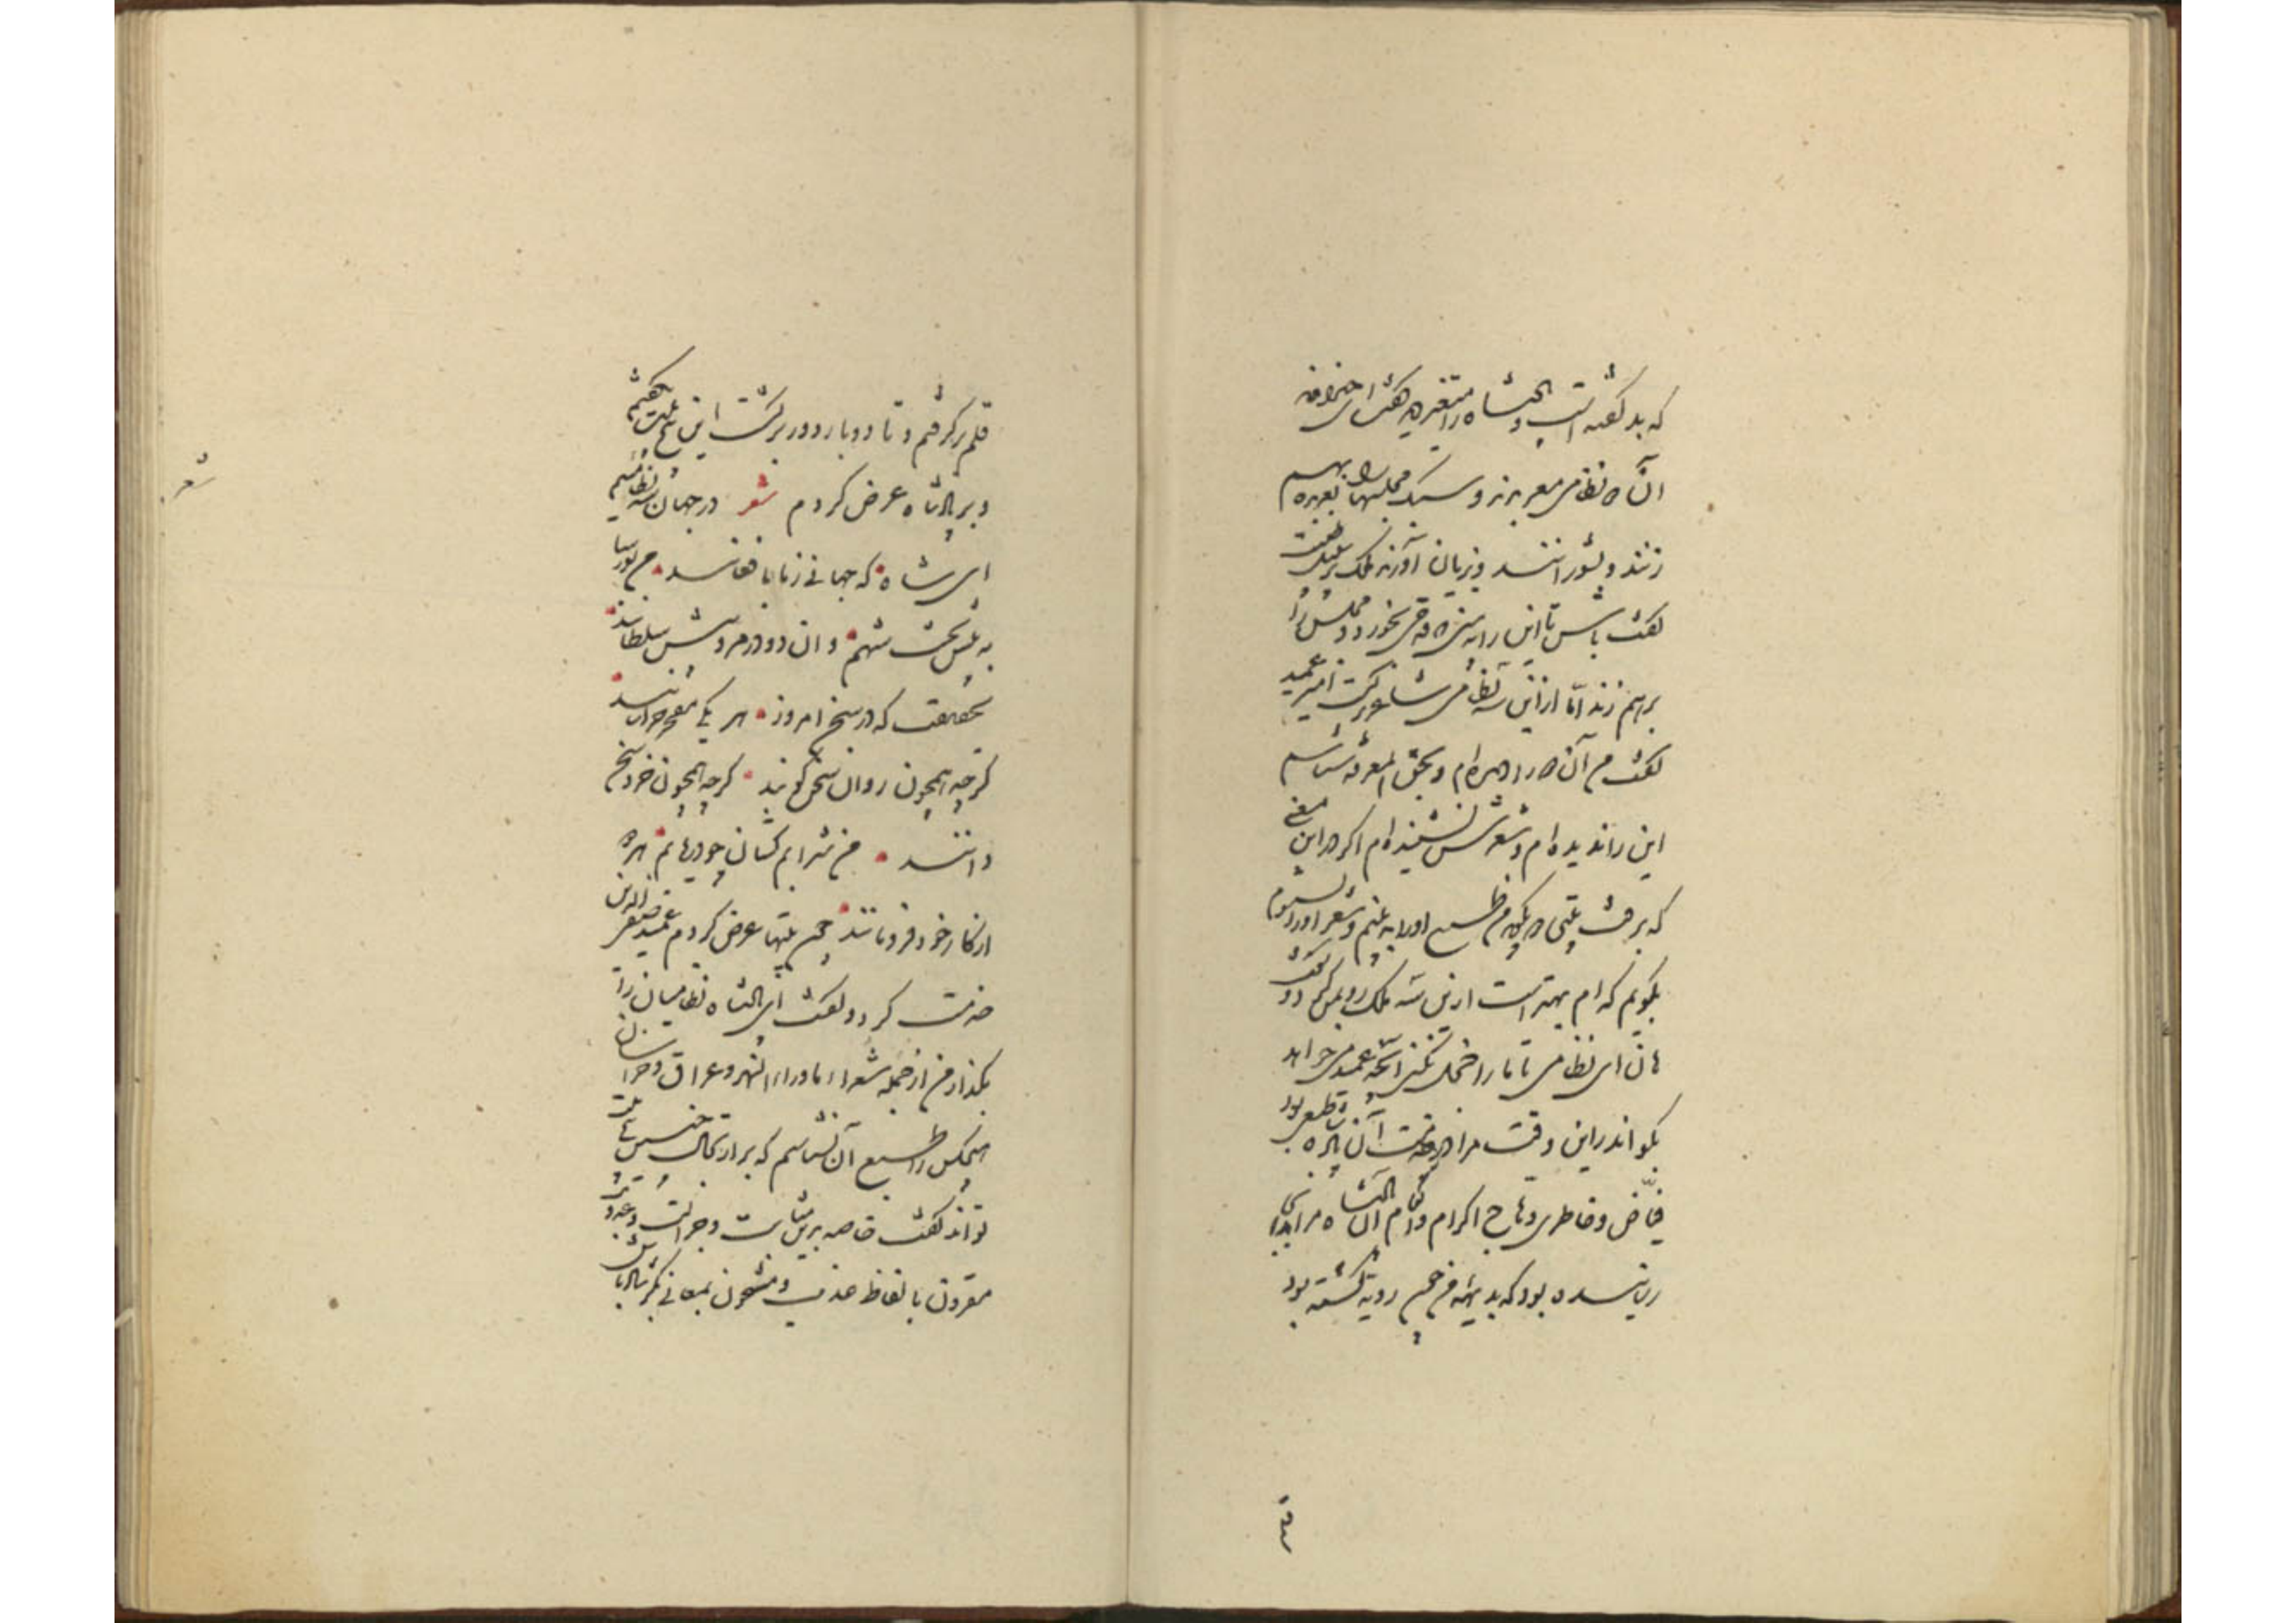 که بد گفته است و پادشاه را متغیر دید گفت ای خداوند
آن نه نظامی معربدند و سبک مجلسها را بعربده بهم
زنند و بشورانند و بزیان آورند ملک بر سبیل طیبت
گفت باش تا این را به بینی که قدحی بخورد و مجلس را
برهم زند اما ازین سه نظامی شاعر کیست امیر عمید
گفت من آن دو را دیده‌ام و بحق المعرفه شناسم
این را ندیده ام و شعرش نشنیده ام اگر در این معنی
که برفت بیتی دو بگوید من طبع او را به بینم و شعر او را بشنوم
بگویم که کدام بهتر است ازین سه ملک روی بمن کرد و گفت
هان ای نظامی تا ما را خجل نکنی آنچه عمید می خواهد
بگو اندر این وقت مرا در خدمت آن پادشاه طبعی بود
فیاض و خاطری وهاج و اکرام و انعام آن پادشاه مرا بدانجا
رسانیده بود که بدیهه من چون رویت گشته بود
قلم
قلم برگرفتم و تا دو بار دور برگشت این پنج بیت بگفتم
و بر پادشاه عرض کردم شعر در جهان سه نظامییم
ای شاه که جهانی ز ما بافغانند من بورسا
به پیش تخت شهم و آن دو در مرو پیش سلطانند
بحقیقت که در سخن امروز هر یکی مفخر خراسانند
گرچه همچون روان سخن گویند گرچه همچون خرد سخن
دانند من شرابم که شان چو دریابم هر دو
از کار خود فرو مانند چون این بیتها عرض کردم عمید صفی الدین
خدمت کرد و گفت ای پادشاه نظامیان را
بگذار من از جمله شعراء ماوراء النهر و عراق و خراسان
هیچکس را طبع آن نشناسم که بر ارتجال چنین پنج بیت
تواند گفت خاصه بدین متانت و جزالت و عذوبت
مقرون بالفاظ عذب و مشحون بمعانی بکر شاد باش
شعر